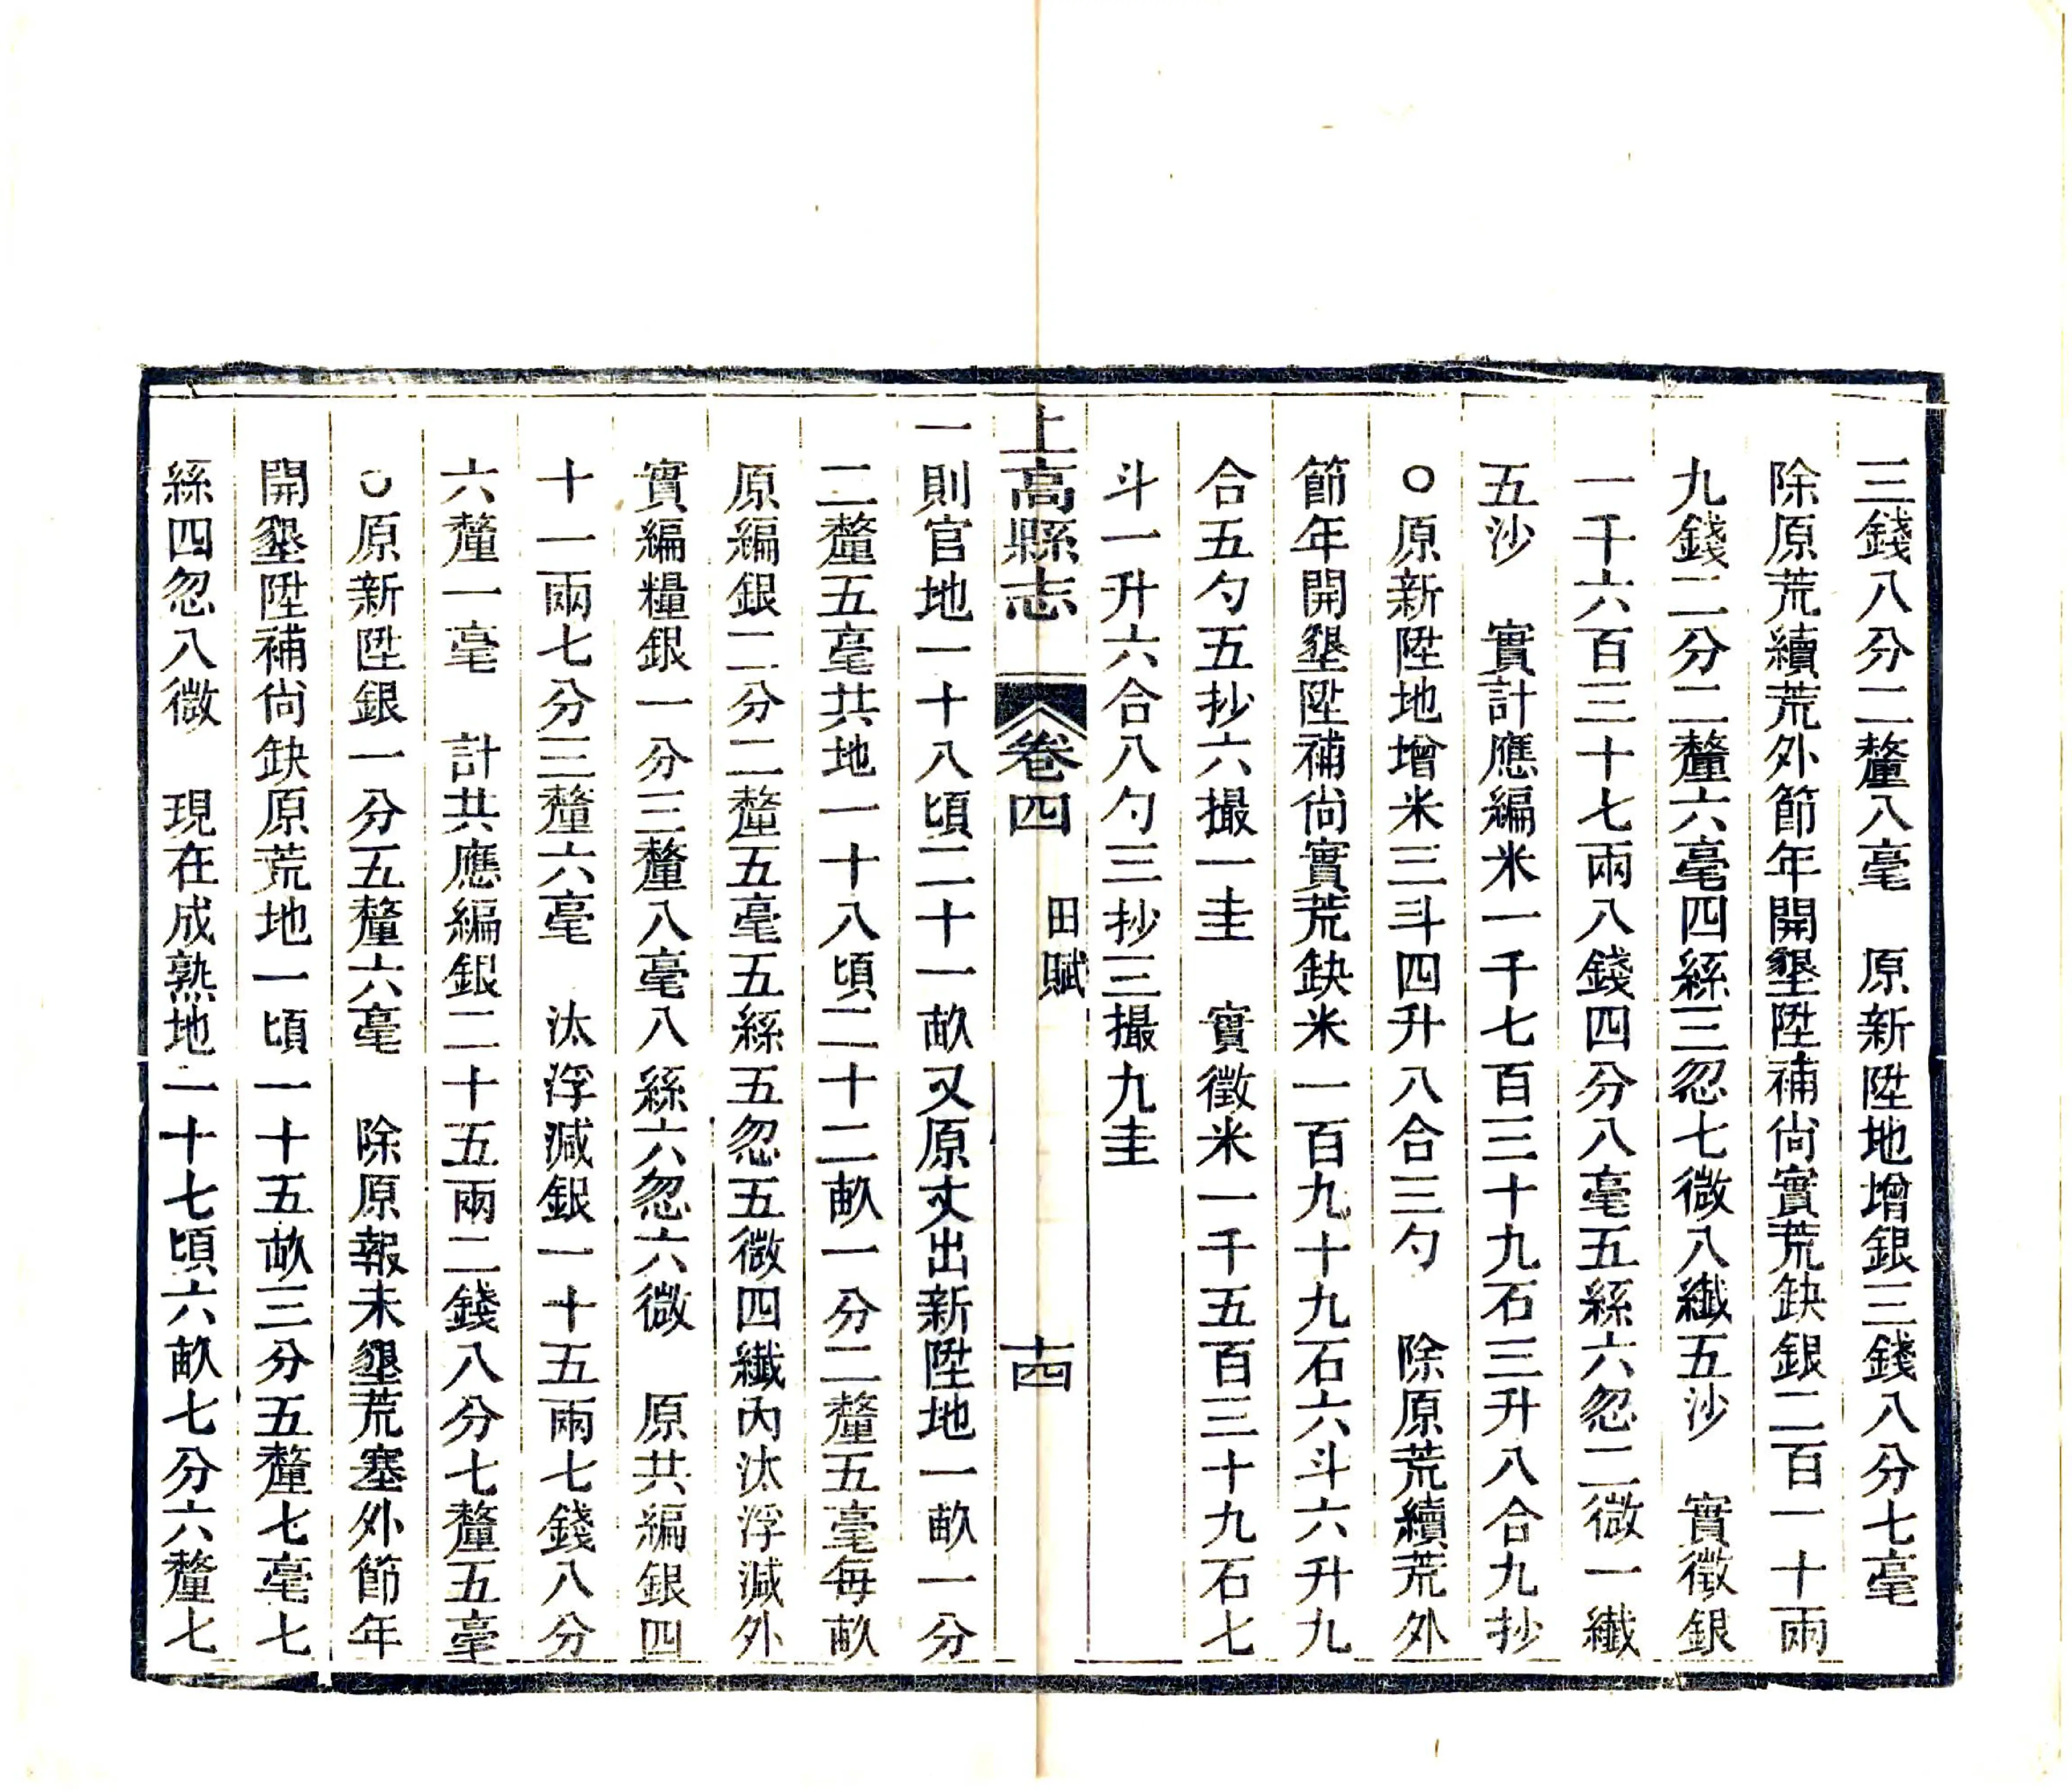 三錢八分二釐八毫　原新陞地增銀三錢八分七毫
除原荒續荒外節年開墾陞補尙實荒缺銀二百一十兩
九錢二分二釐六毫四絲三忽七微八纖五沙　實徵銀
一千六百三十七兩八錢四分八毫五絲六忽二微一纖
五沙　實計應編米一千七百三十九石三升八合九抄
○原新陞地增米三斗四升八合三勺　除原荒續荒外
節年開墾陞補尙實荒缺米一百九十九石六斗六升九
合五勺五抄六撮一圭　實徵米一千五百三十九石七
斗一升六合八勺三抄三撮九圭
上高縣志　卷四　田賦　十四
一則官地一十八頃二十一畝又原丈出新陞地一畝一分
二釐五毫共地一十八頃二十二畝一分二釐五毫每畝
原編銀二分二釐五毫五絲五忽五微四纖內汰浮減外
實編糧銀一分三釐八毫八絲六忽六微　原共編銀四
十一兩七分三釐六毫　汰浮減銀一十五兩七錢八分
六釐一毫　計共應編銀二十五兩二錢八分七釐五毫
○原新陞銀一分五釐六毫　除原報未墾荒塞外節年
開墾陞補尙缺原荒地一頃一十五畝三分五釐七毫七
絲四忽八微　現在成熟地一十七頃六畝七分六釐七